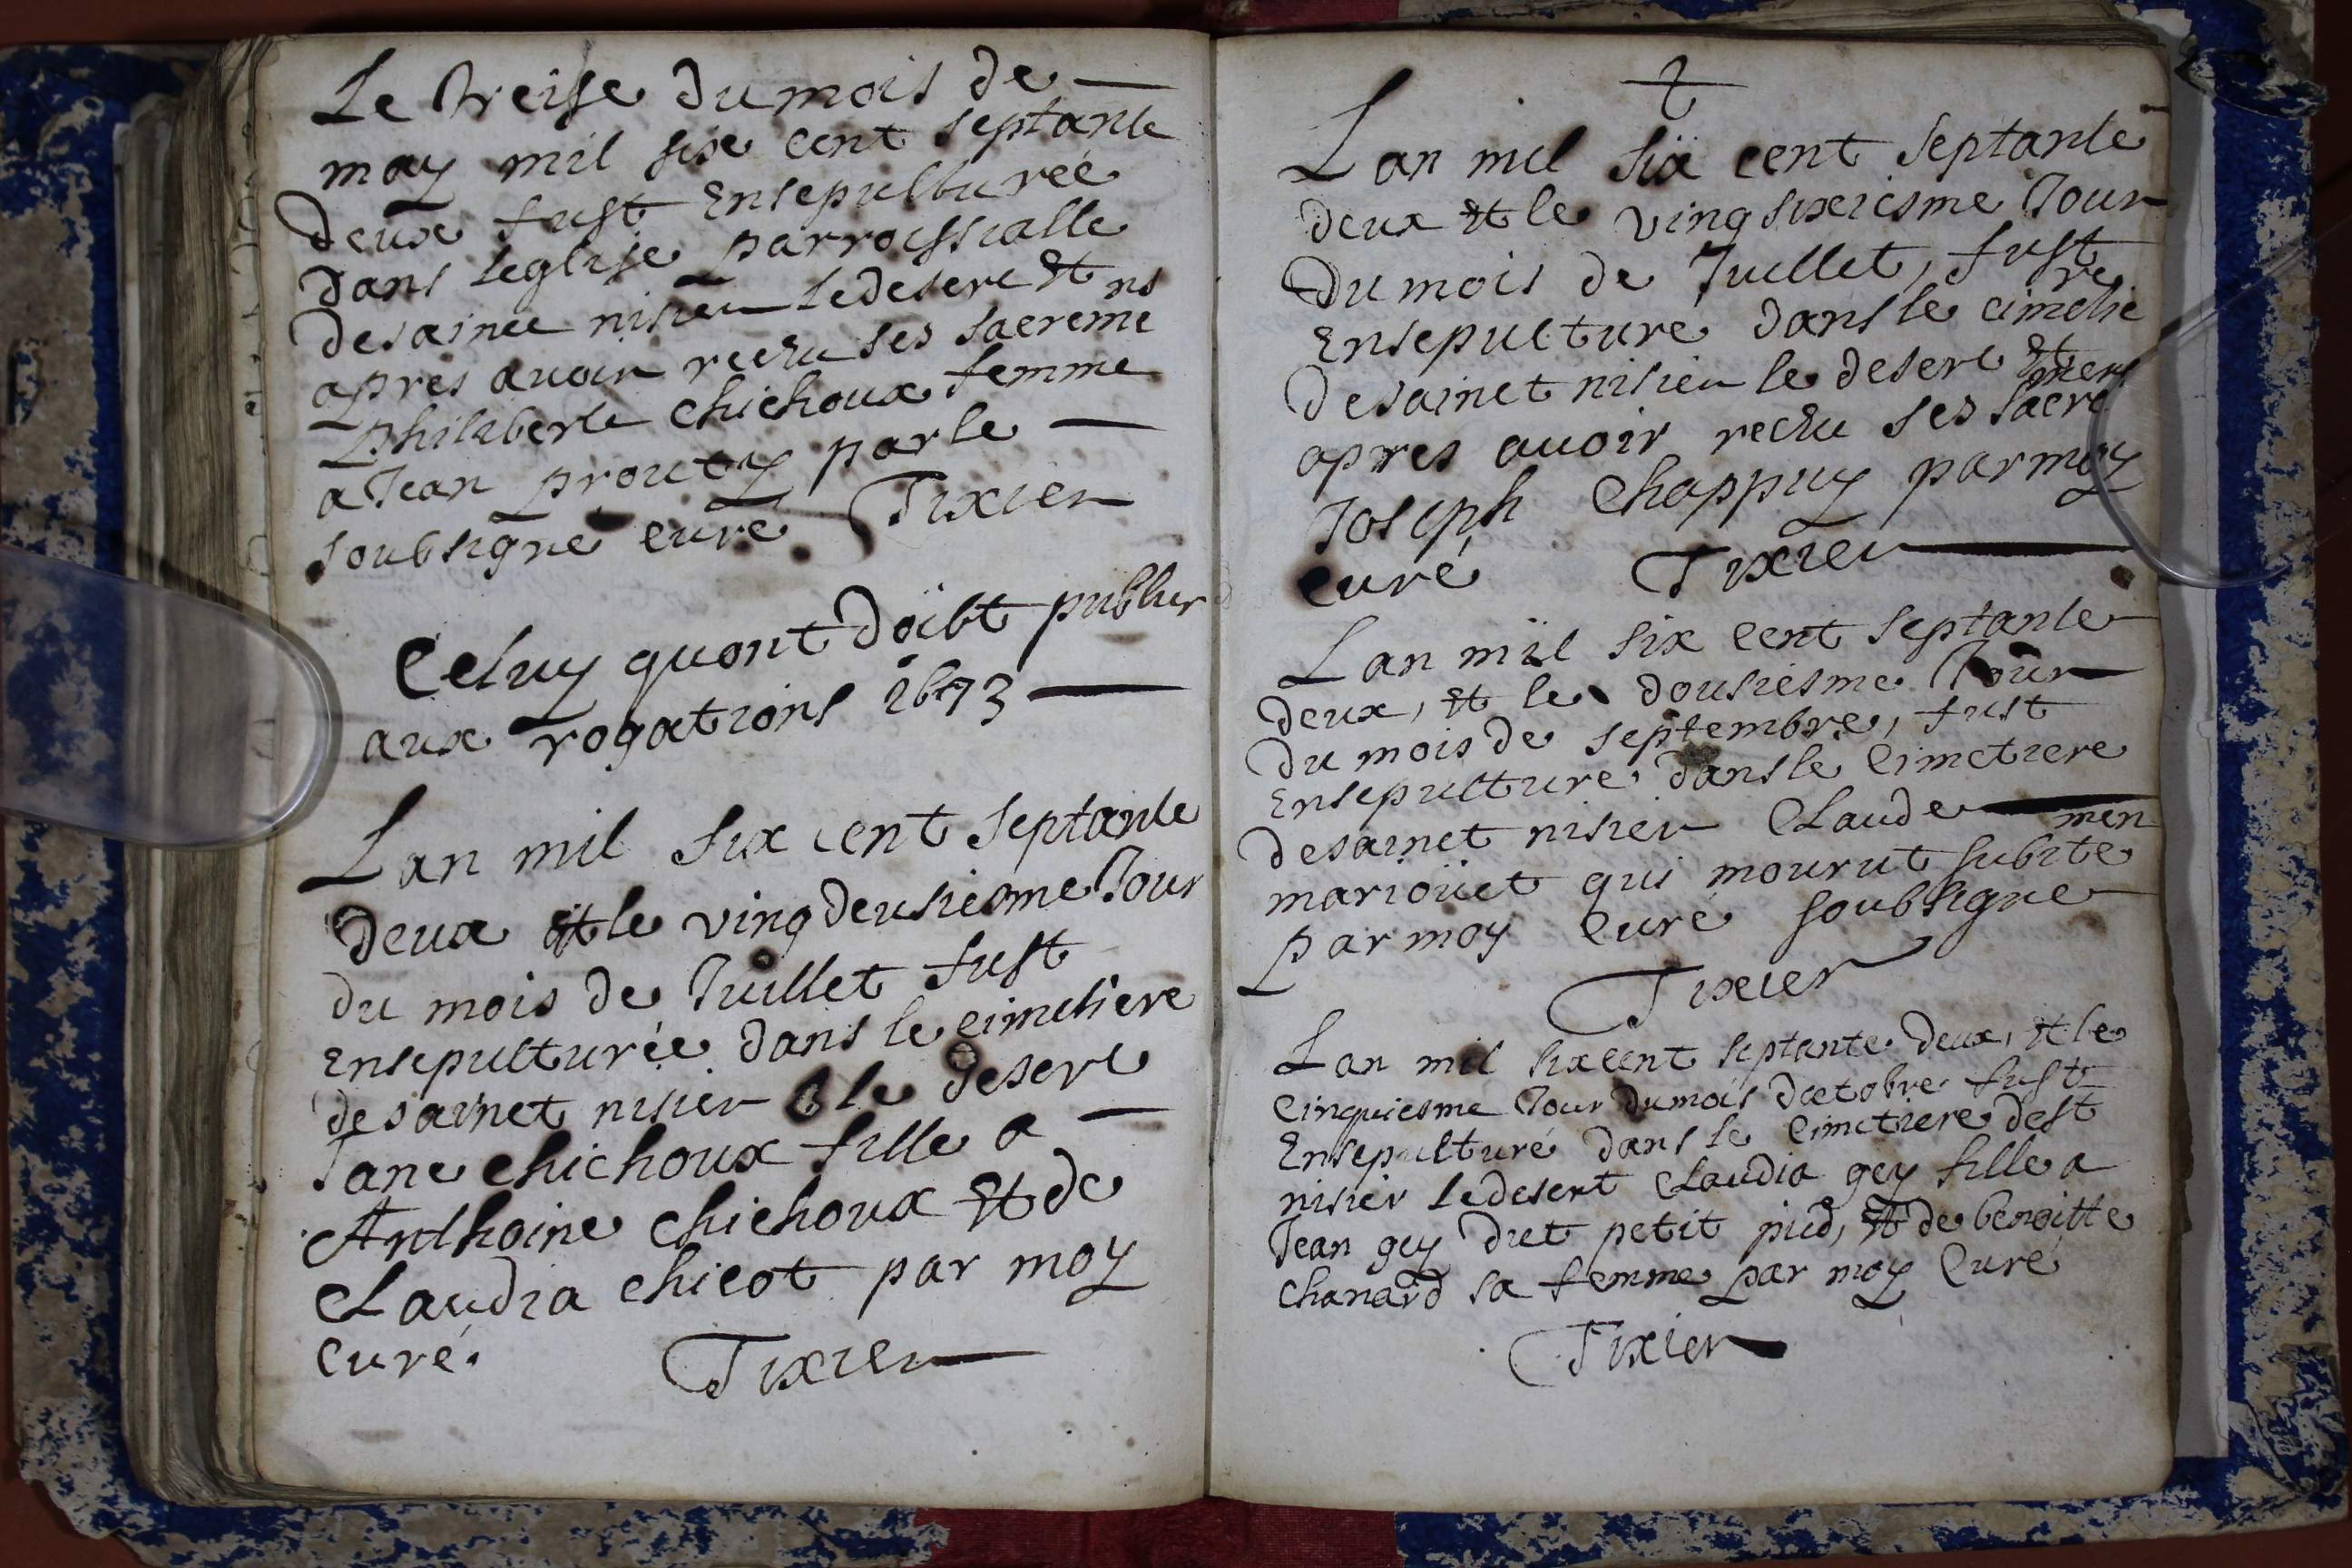 Le treise du mois de
may mil six cent septante
deux fust Ensepulturée
dans leglise parroissialle
de sainct nisier le desert Et
apres avoir recëu ses sacremens
philiberte chichoux femme
a Jean prouty par le
soubsigné curé Tixier
Celuy quont doibt publier
aux rogations 1673
Lan mil six cent septante
deux Et le vingdeusiesme Jour
du mois de Juillet fust
Ensepulturée dans le cimetiere
de sainct nisier le desert
Jane chichoux fille a
Anthoine chichoux Et de
Claudia chicot par moy
curé. Tixier
Lan mil six cent septante
deux Et le vingsixiesme Jour
du mois de Juillet, fust
Ensepulturé dans le cimetiere
de sainct nisier le desert Et
apres avoir recëu ses sacremens
Joseph Chappuy par moy
curé Tixier
Lan mil six cent septante
deux, Et le dousiesme Jour
du mois de septembre, fust
Ensepulturé dans le cimetiere
de sainct nisier Claude
marioüet qui mourut subitemen
par moy curé soubsigne
Tixier
Lan mil six cent septante deux, Et le
cinquiesme Jour du mois doctobre fust
Ensepulturé dans le cimetiere de st
nisier le desert Claudia gey fille a
Jean gey dict petit pied, Et de benoitte
chanard sa femme par moy curé
Tixier